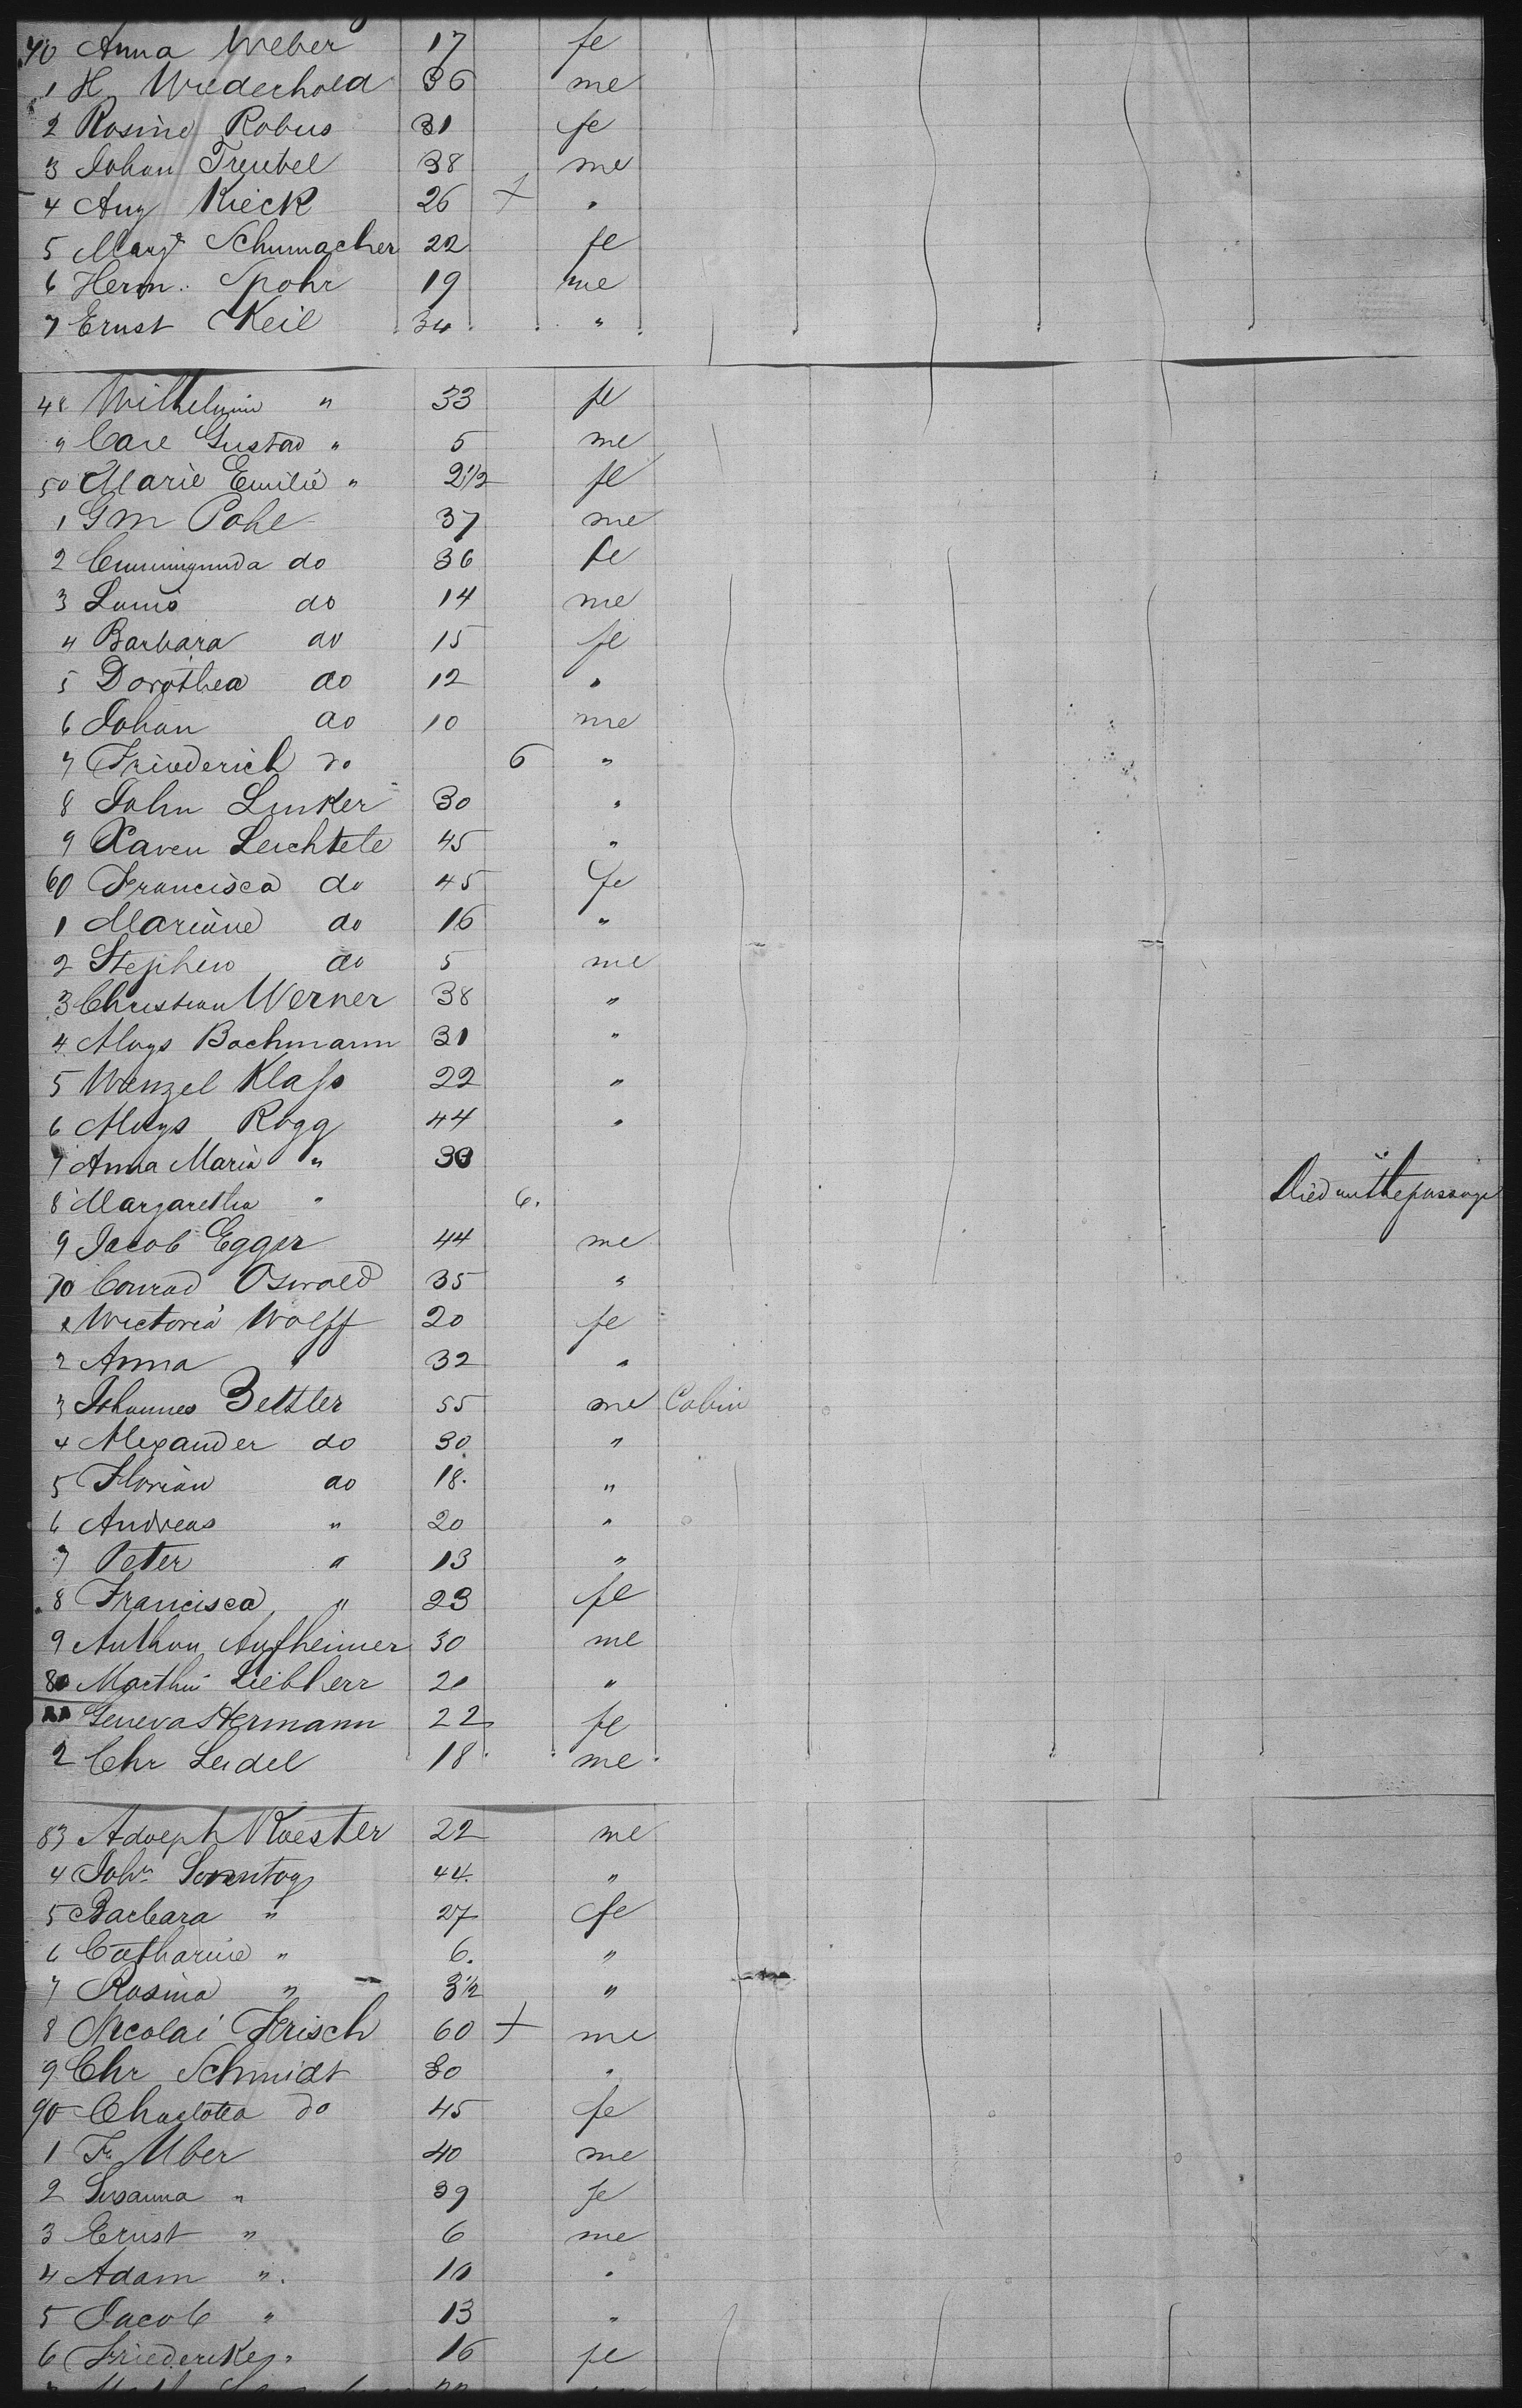 40 Anna Weber 17 fe
1 H. Wiederhold 36 me
2 Rosine Robus 31 fe
3 Johan Treubel 38 me
4 Aug Kieck 26 + "
5 Margt Schumacher 22 fe
6 Herm. Spohr 19 me
7 Ernst Keil 34 "
48 Wilhelmin " 33 fe
9 Carl Gustav " 5 me
50 Marie Emilie " 2 1/2 fe
1 G M Pohl 37 me
2 Cunnigunda do 36 fe
3 Louis do 14 me
4 Barbara do 15 fe
5 Dorothea do 12 "
6 Johan do 10 me
7 Friederich do 6 "
8 John Linker 30 "
9 Xaven Leichtele 45 "
60 Francisca do 45 fe
1 Mariane do 16 "
2 Stephen do 5 me
3 Christian Werner 38 "
4 Aloys Bachmann 31 "
5 Wenzel Klass 22 "
6 Aloys Rogg 44 "
7 Anna Maria " 30
8 Margaretha " 6. Died on the passage
9 Jacob Egger 44 me
70 Conrad Oswald 35 "
1 Wictoria Wolff 20 fe
2 Anna " 32 "
3 Johannes Bettler 55 me Cabin
4 Alexander do 30 "
5 Florian do 18. "
6 Andreas " 20 "
7 Peter " 13 "
8 Francisca " 23 fe
9 Anthon Aufheimer 30 me
80 Mathii Liebherr 20 "
Geneva Hermann 22 fe
2 Chr Leidel 18 me
83 Adolph Koester 22 me
4 John Sonntag 44. "
5 Barbara " 27 fe
6 Catharine " 6. "
7 Rosina " 3 1/2 "
8 Nicolai Frisch 60 + me
9 Chr Schmidt 30 "
90 Charlotta do 45 fe
1 Fr. Uber 40 me
2 Susanna " 39 fe
3 Ernst " 6 me
4 Adam " 10 "
5 Jacob " 13 "
6 Friederike " 16 fe